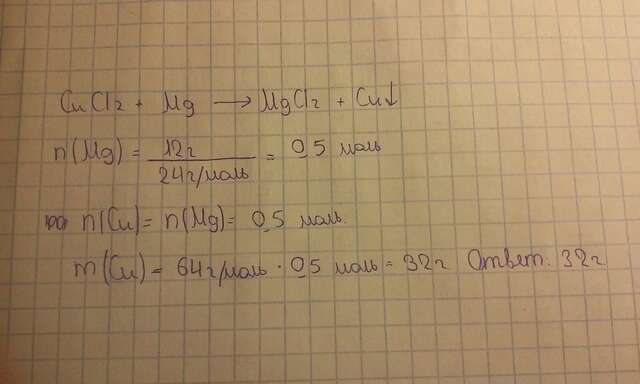 CuCl2 + Mg ⟶ MgCl2 + Cu↓
n(Mg) = 12г / 24г/моль = 0,5 моль
n(Cu) = n(Mg) = 0,5 моль.
m(Cu) = 64г/моль · 0,5 моль = 32г Ответ: 32г